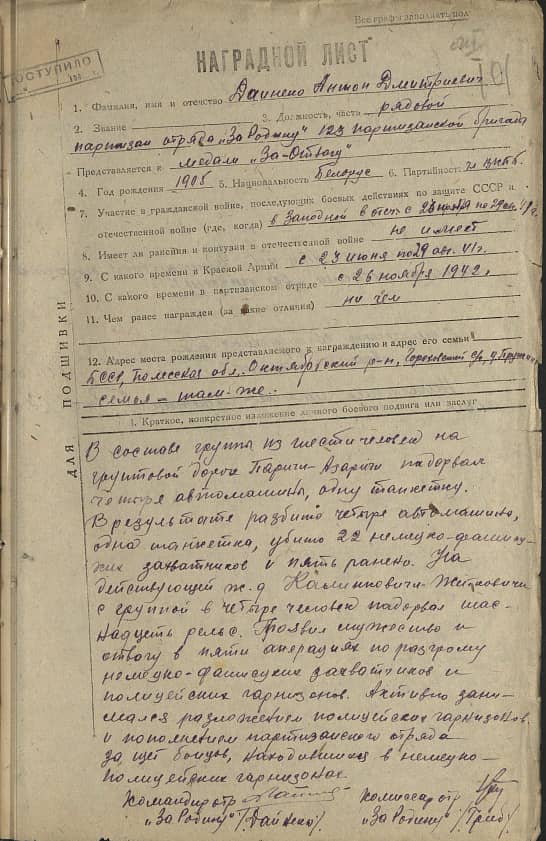 Все графы заполнять пол
НАГРАДНОЙ ЛИСТ
ПОСТУПИЛО
1. Фамилия, имя и отчество Даинеко Антон Дмитриевич
2. Звание 3. Должность, часть рядовой
партизан отряда „За Родину" 123 партизанской бригады
Представляется к медали „За Отвагу"
4. Год рождения 1905 5. Национальность Белорус 6. Партийность
7. Участие в гражданской войне, последующих боевых действиях по защите СССР и
отечественной войне (где, когда) в Западной в отеч. с
8. Имеет ли ранения и контузии в отечественной войне не имеет
9. С какого времени в Красной Армии с 27 июня по 29 41 г.
10. С какого времени в партизанском отряде с 26 ноября 1942 г.
11. Чем ранее награжден (за какие отличия) ни чем
12. Адрес места рождения представляемого к награждению и адрес его семьи
БССР, Полесская обл. Октябрьский р-н,
семья – там-же.
ДЛЯ ПОДШИВКИ
1. Краткое, конкретное изложение личного боевого подвига или заслуг
В составе группы из шести человек на
грунтовой дороге Паричи-Азаричи подорвал
четыре автомашины, одну танкетку.
В результате разбито четыре автомашины,
одна танкетка, убито 22 немецко-фашист-
ких захватников и пять ранено. На
действующей ж.д Калинковичи-Житковичи
с группой в четыре человек подорвал шес-
надцеть рельс. Проявил мужество и
отвагу в пяти операциях по разгрому
немецко-фашистких захватчиков и
полицейских гарнизонов. Активно зани-
мался разложением полицейских гарнизонов
и пополнением партизанского отряда
за щет бойцов, находившихся в немецко-
полицейских гарнизонах.
Командир отр. Комиссар отр
„За Родину" /Дайнеко/. „За Родину" /Гриб/.